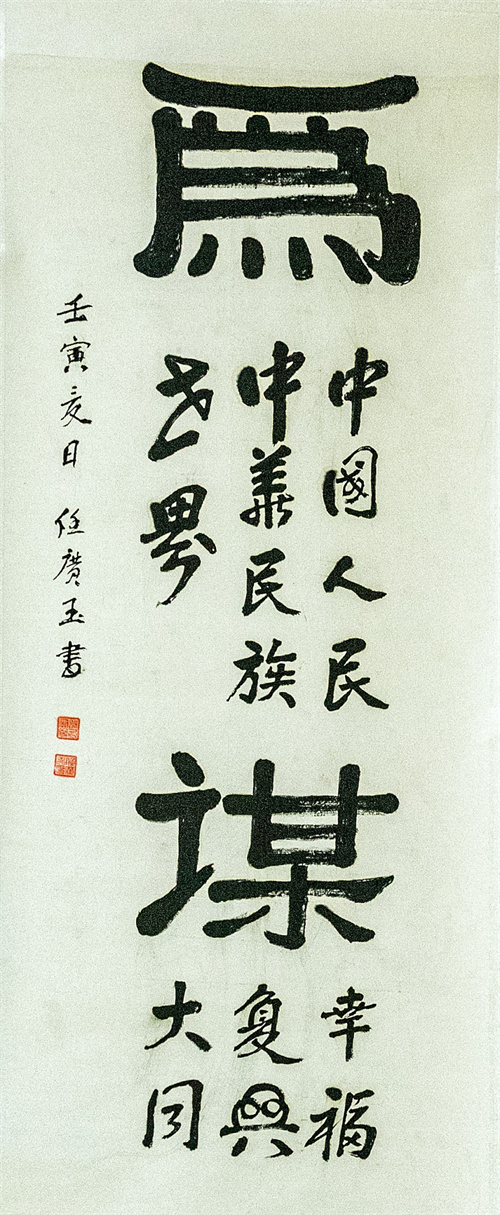 為
中國人民
中華民族
世界
谋
幸福
复興
大同
壬寅夏日 任廣玉書